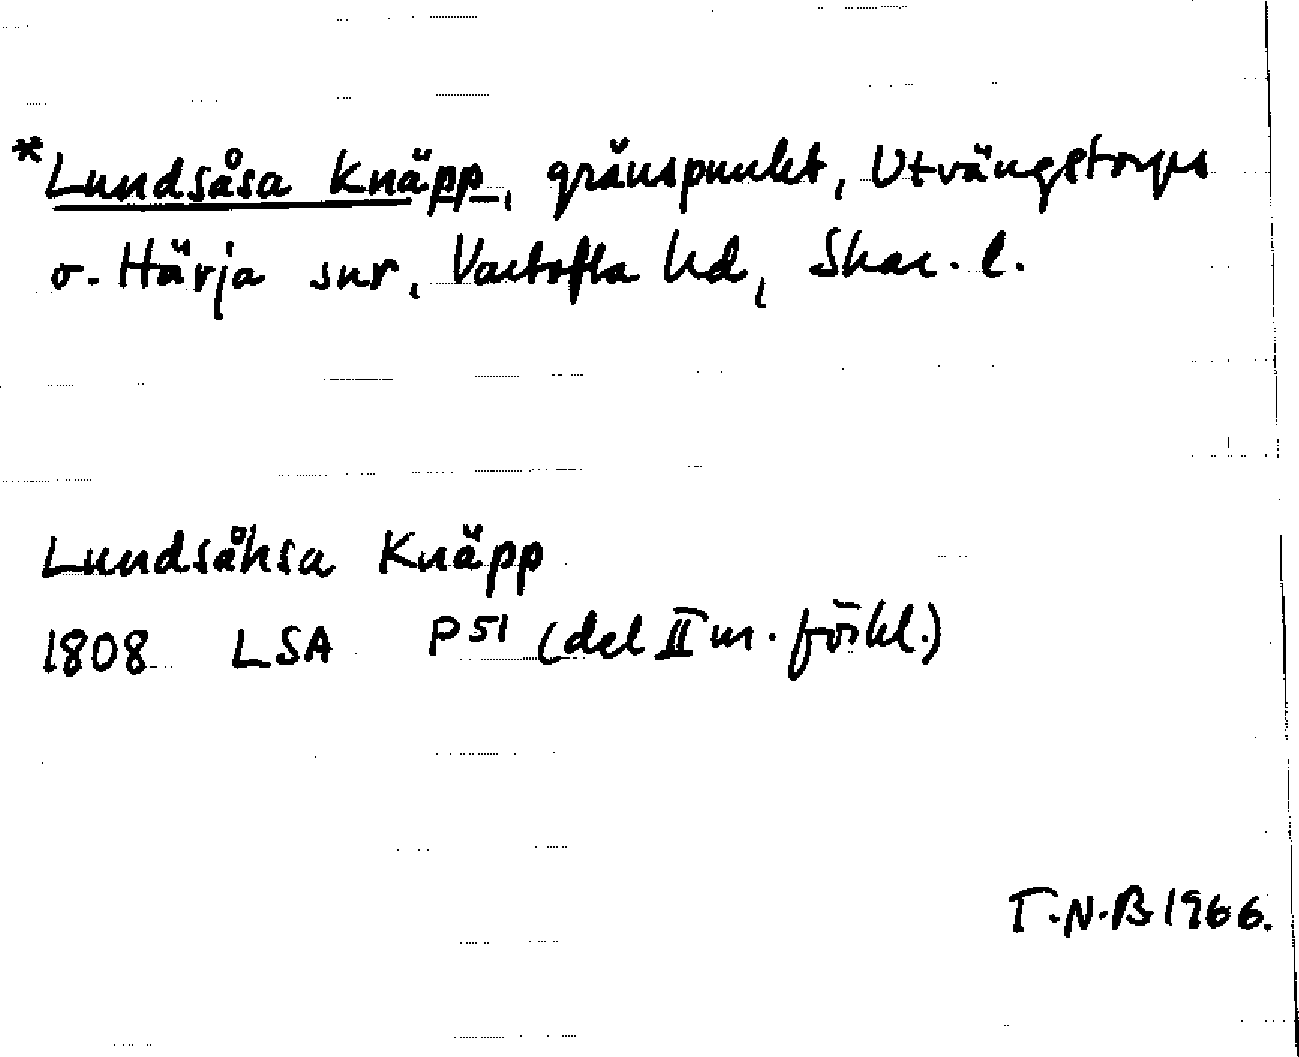 *Lundsåsa Knäpp, gränspunkt, Utvängstorps
o. Härja snr, Vartofta hd, Skar. l.
Lundsåhsa Knäpp
1808 LSA P51 (del II m. förkl.)
T.N.B 1966.